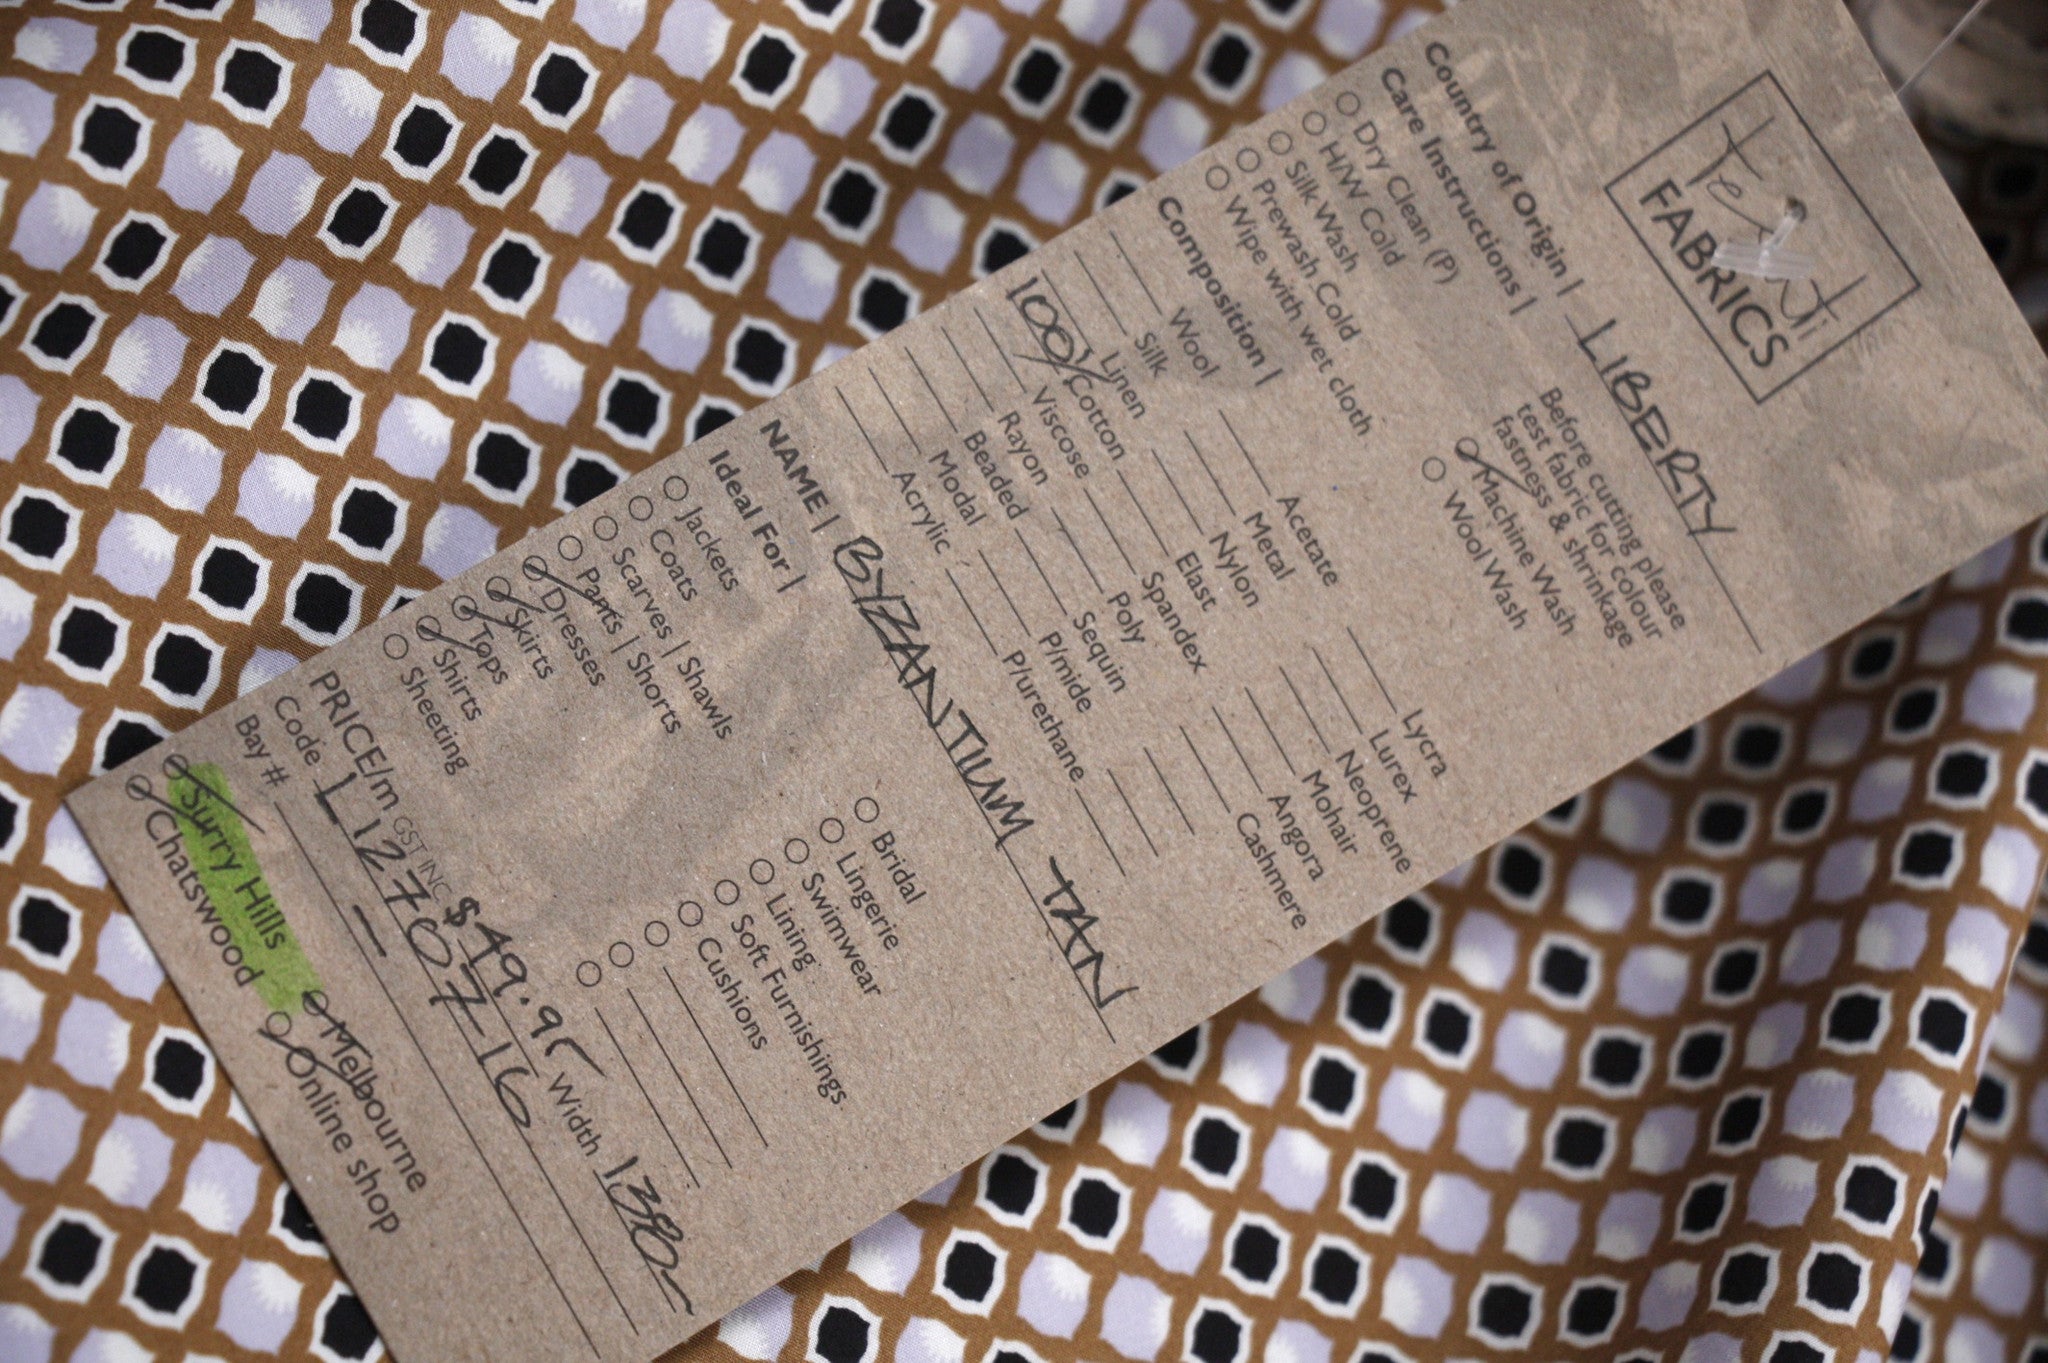 Tessuti
FABRICS
Country of Origin | LIBERTY
Care Instructions |
Dry Clean (P)
H/W Cold
Silk Wash
Prewash Cold
Wipe with wet cloth
Before cutting please
test fabric for colour
fastness & shrinkage
Machine Wash
Wool Wash
Composition |
Wool
Silk
Linen
100% Cotton
Viscose
Rayon
Beaded
Modal
Acrylic
Acetate
Metal
Nylon
Elast
Spandex
Poly
Sequin
P/mide
P/urethane
Lycra
Lurex
Neoprene
Mohair
Angora
Cashmere
NAME | BYZANTIUM TAN
Ideal For |
Jackets
Coats
Scarves | Shawls
Pants | Shorts
Dresses
Skirts
Tops
Shirts
Sheeting
Bridal
Lingerie
Swimwear
Lining
Soft Furnishings
Cushions
PRICE/m GST INC $49.95 Width 138c
Code L12707-16
Bay # -
Surry Hills
Chatswood
Melbourne
Online shop